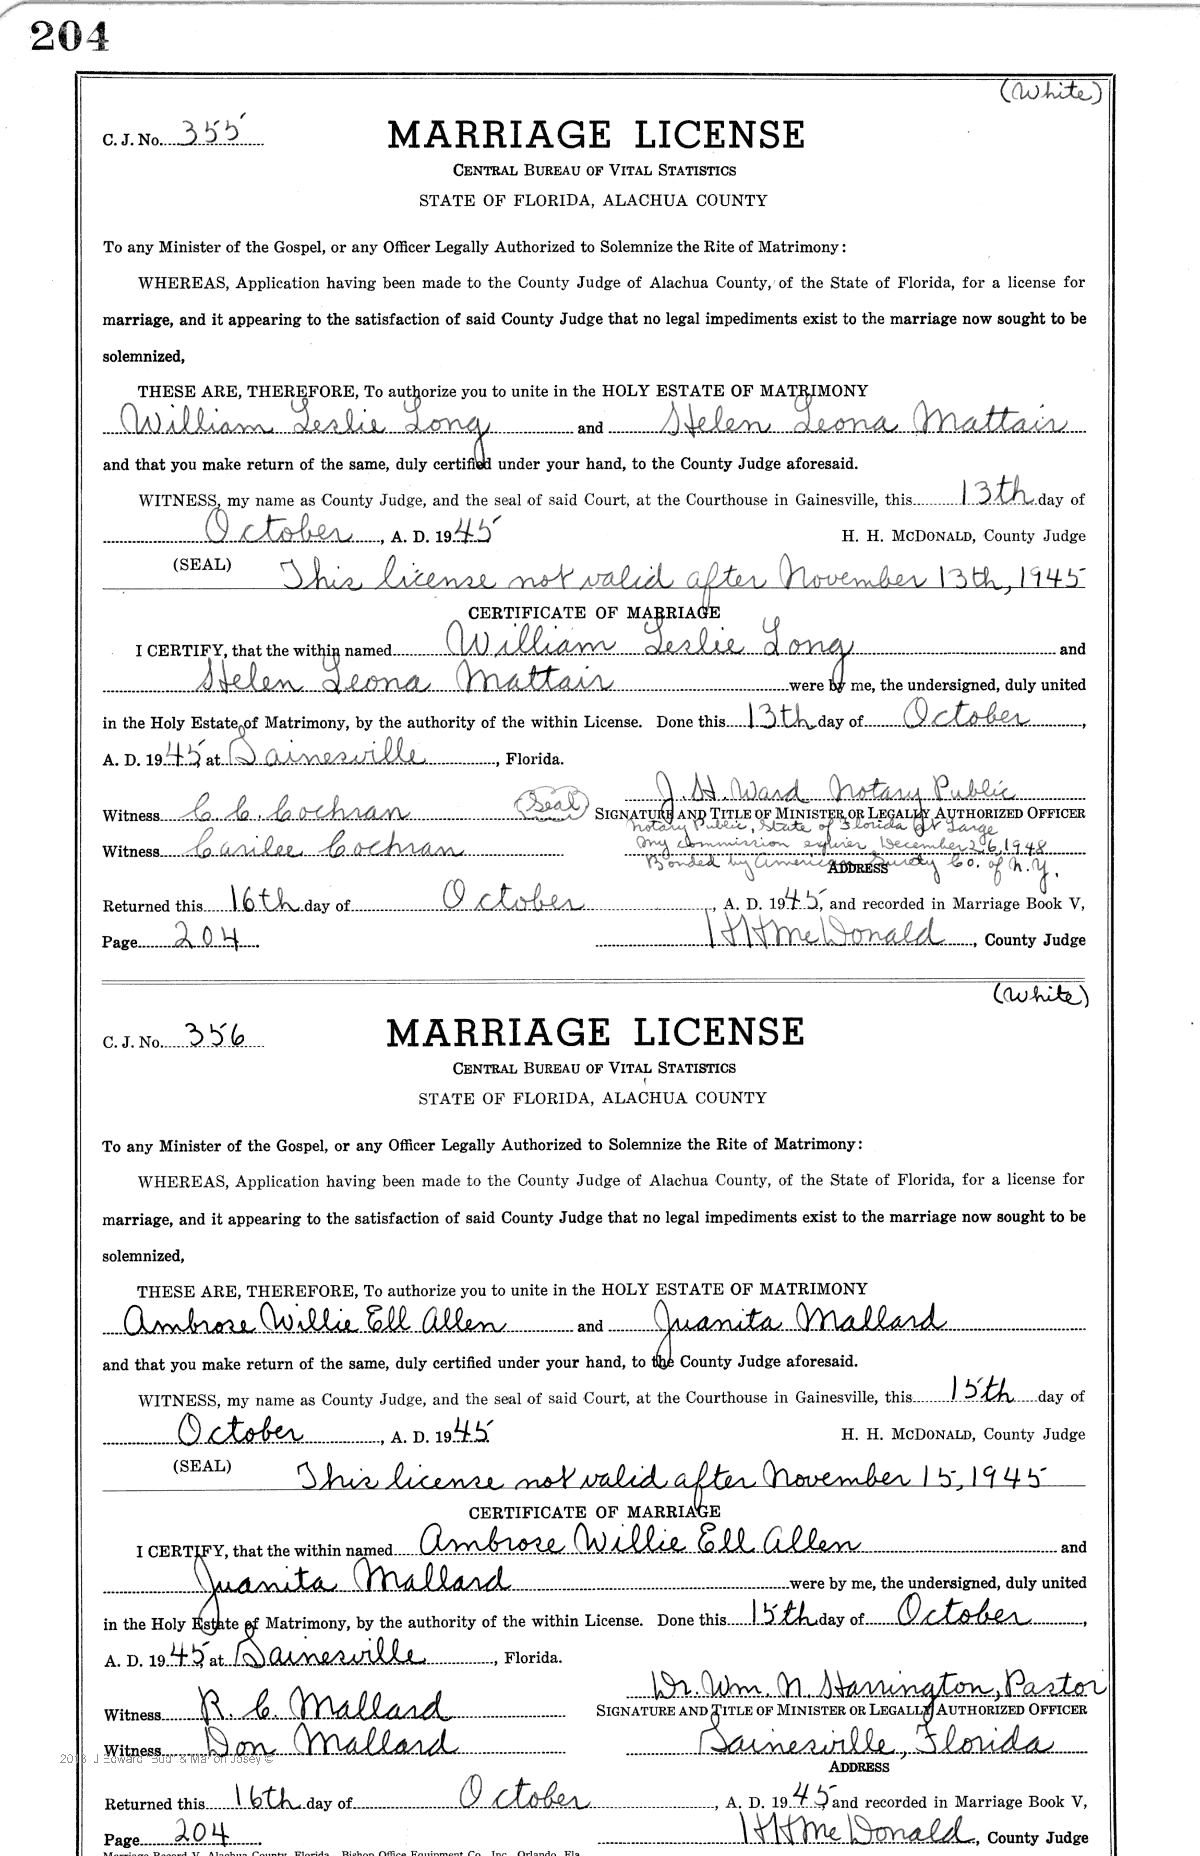 204
(White)
C. J. No. 355
MARRIAGE LICENSE
CENTRAL BUREAU OF VITAL STATISTICS
STATE OF FLORIDA, ALACHUA COUNTY
To any Minister of the Gospel, or any Officer Legally Authorized to Solemnize the Rite of Matrimony:
WHEREAS, Application having been made to the County Judge of Alachua County, of the State of Florida, for a license for
marriage, and it appearing to the satisfaction of said County Judge that no legal impediments exist to the marriage now sought to be
solemnized,
THESE ARE, THEREFORE, To authorize you to unite in the HOLY ESTATE OF MATRIMONY
William Leslie Long and Helen Leona Mattair
and that you make return of the same, duly certified under your hand, to the County Judge aforesaid.
WITNESS, my name as County Judge, and the seal of said Court, at the Courthouse in Gainesville, this 13th day of
October, A. D. 1945 H. H. McDONALD, County Judge
(SEAL) This license not valid after November 13th, 1945
CERTIFICATE OF MARRIAGE
I CERTIFY, that the within named William Leslie Long and
Helen Leona Mattair were by me, the undersigned, duly united
in the Holy Estate of Matrimony, by the authority of the within License. Done this 13th day of October,
A. D. 1945, at Gainesville, Florida.
J. H. Ward Notary Public
Witness C. C. Cochran (Seal) SIGNATURE AND TITLE OF MINISTER OR LEGALLY AUTHORIZED OFFICER
Notary Public, State of Florida at Large
Witness Carilee Cochran My commission expires December 26, 1948
Bonded by American Surety Co. of N.Y.
ADDRESS
Returned this 16th day of October, A. D. 1945, and recorded in Marriage Book V,
Page 204 H H McDonald, County Judge
(White)
C. J. No. 356
MARRIAGE LICENSE
CENTRAL BUREAU OF VITAL STATISTICS
STATE OF FLORIDA, ALACHUA COUNTY
To any Minister of the Gospel, or any Officer Legally Authorized to Solemnize the Rite of Matrimony:
WHEREAS, Application having been made to the County Judge of Alachua County, of the State of Florida, for a license for
marriage, and it appearing to the satisfaction of said County Judge that no legal impediments exist to the marriage now sought to be
solemnized,
THESE ARE, THEREFORE, To authorize you to unite in the HOLY ESTATE OF MATRIMONY
Ambrose Willie Ell Allen and Juanita Mallard
and that you make return of the same, duly certified under your hand, to the County Judge aforesaid.
WITNESS, my name as County Judge, and the seal of said Court, at the Courthouse in Gainesville, this 15th day of
October, A. D. 1945 H. H. McDONALD, County Judge
(SEAL) This license not valid after November 15, 1945
CERTIFICATE OF MARRIAGE
I CERTIFY, that the within named Ambrose Willie Ell Allen and
Juanita Mallard were by me, the undersigned, duly united
in the Holy Estate of Matrimony, by the authority of the within License. Done this 15th day of October,
A. D. 1945, at Gainesville, Florida.
Dr. Wm. N. Harrington, Pastor
Witness R. C. Mallard SIGNATURE AND TITLE OF MINISTER OR LEGALLY AUTHORIZED OFFICER
Witness Don Mallard Gainesville, Florida
ADDRESS
Returned this 16th day of October, A. D. 1945, and recorded in Marriage Book V,
Page 204 H H McDonald, County Judge
Marriage Record V, Alachua County, Florida. Bishop Office Equipment Co., Inc., Orlando, Fla.